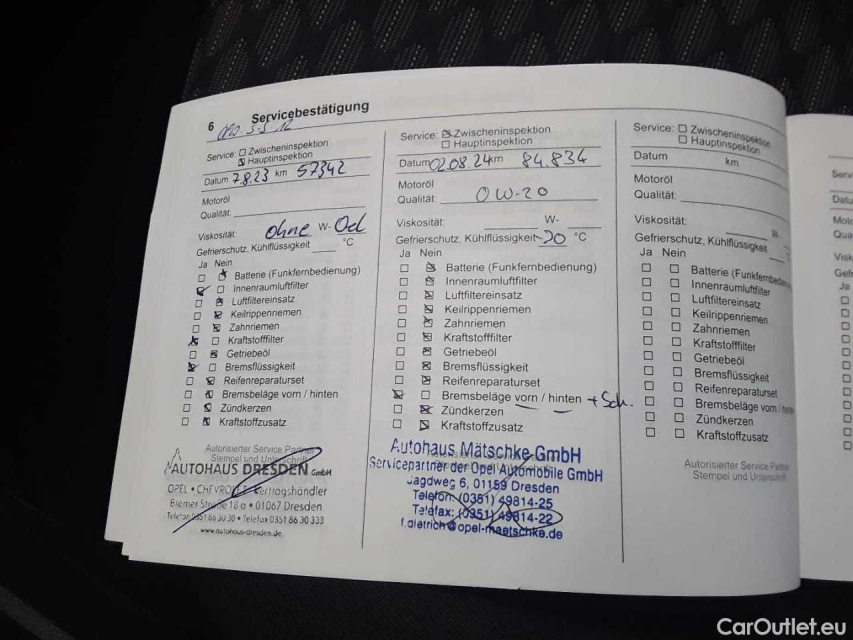 6 Servicebestätigung
Service: ☐ Zwischeninspektion
☒ Hauptinspektion
Datum 7.8.23 km 57342
Motoröl
Qualität:
Viskosität: ohne W- Oel
Gefrierschutz, Kühlflüssigkeit °C
Ja Nein
☐ ☒ Batterie (Funkfernbedienung)
☒ ☐ Innenraumluftfilter
☐ ☒ Luftfiltereinsatz
☐ ☒ Keilrippenriemen
☐ ☒ Zahnriemen
☒ ☐ Kraftstofffilter
☐ ☒ Getriebeöl
☒ ☐ Bremsflüssigkeit
☐ ☒ Reifenreparaturset
☐ ☒ Bremsbeläge vorn / hinten
☐ ☒ Zündkerzen
☐ ☒ Kraftstoffzusatz
Autorisierter Service Partner
Stempel und Unterschrift
AUTOHAUS DRESDEN GmbH
OPEL • CHEVROLET Vertragshändler
Bremer Straße 18 a • 01067 Dresden
Telefon 0351 86 30 30 • Telefax 0351 86 30 333
www.autohaus-dresden.de
Service: ☒ Zwischeninspektion
☐ Hauptinspektion
Datum 02.08.24 km 84.834
Motoröl
Qualität: 0W-20
Viskosität: W-
Gefrierschutz, Kühlflüssigkeit -30 °C
Ja Nein
☐ ☒ Batterie (Funkfernbedienung)
☐ ☒ Innenraumluftfilter
☐ ☒ Luftfiltereinsatz
☐ ☒ Keilrippenriemen
☐ ☒ Zahnriemen
☐ ☒ Kraftstofffilter
☐ ☒ Getriebeöl
☐ ☒ Bremsflüssigkeit
☐ ☒ Reifenreparaturset
☒ ☐ Bremsbeläge vorn / hinten + Sch.
☐ ☒ Zündkerzen
☐ ☒ Kraftstoffzusatz
Autohaus Mätschke GmbH
Servicepartner der Opel Automobile GmbH
Jagdweg 6, 01159 Dresden
Telefon: (0351) 49814-25
Telefax: (0351) 49814-22
f.dietrich@opel-maetschke.de
Service: ☐ Zwischeninspektion
☐ Hauptinspektion
Datum km
Motoröl
Qualität:
Viskosität: W-
Gefrierschutz, Kühlflüssigkeit
Ja Nein
☐ ☐ Batterie (Funkfernbedienung)
☐ ☐ Innenraumluftfilter
☐ ☐ Luftfiltereinsatz
☐ ☐ Keilrippenriemen
☐ ☐ Zahnriemen
☐ ☐ Kraftstofffilter
☐ ☐ Getriebeöl
☐ ☐ Bremsflüssigkeit
☐ ☐ Reifenreparaturset
☐ ☐ Bremsbeläge vorn / hinten
☐ ☐ Zündkerzen
☐ ☐ Kraftstoffzusatz
Autorisierter Service Partner
Stempel und Unterschrift
CarOutlet.eu